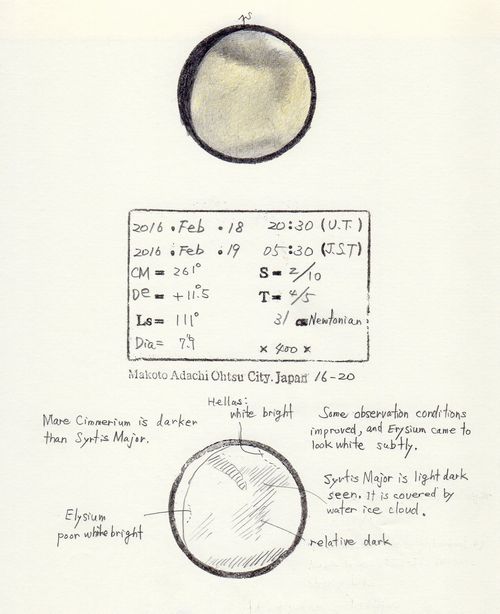 S
2016 . Feb . 18 20:30 (U.T.)
2016 . Feb . 19 05:30 (J.S.T)
CM = 261° S = 2/10
De = +11.5 T = 4/5
Ls = 111° 31 cm Newtonian
Dia = 7".9 × 400 ×
Makoto Adachi Ohtsu City. Japan 16-20
Hellas:
white bright
Mare Cimmerium is darker
than Syrtis Major.
Some observation conditions
improved, and Erysium came to
look white subtly.
Syrtis Major is light dark
seen. It is covered by
water ice cloud.
Elysium
poor white bright
relative dark